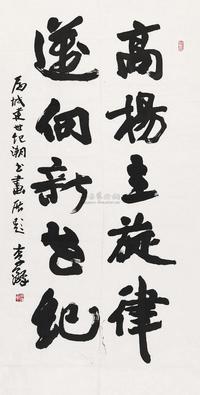 高扬主旋律
迈向新世纪
为城建世纪潮书画展题 李铎